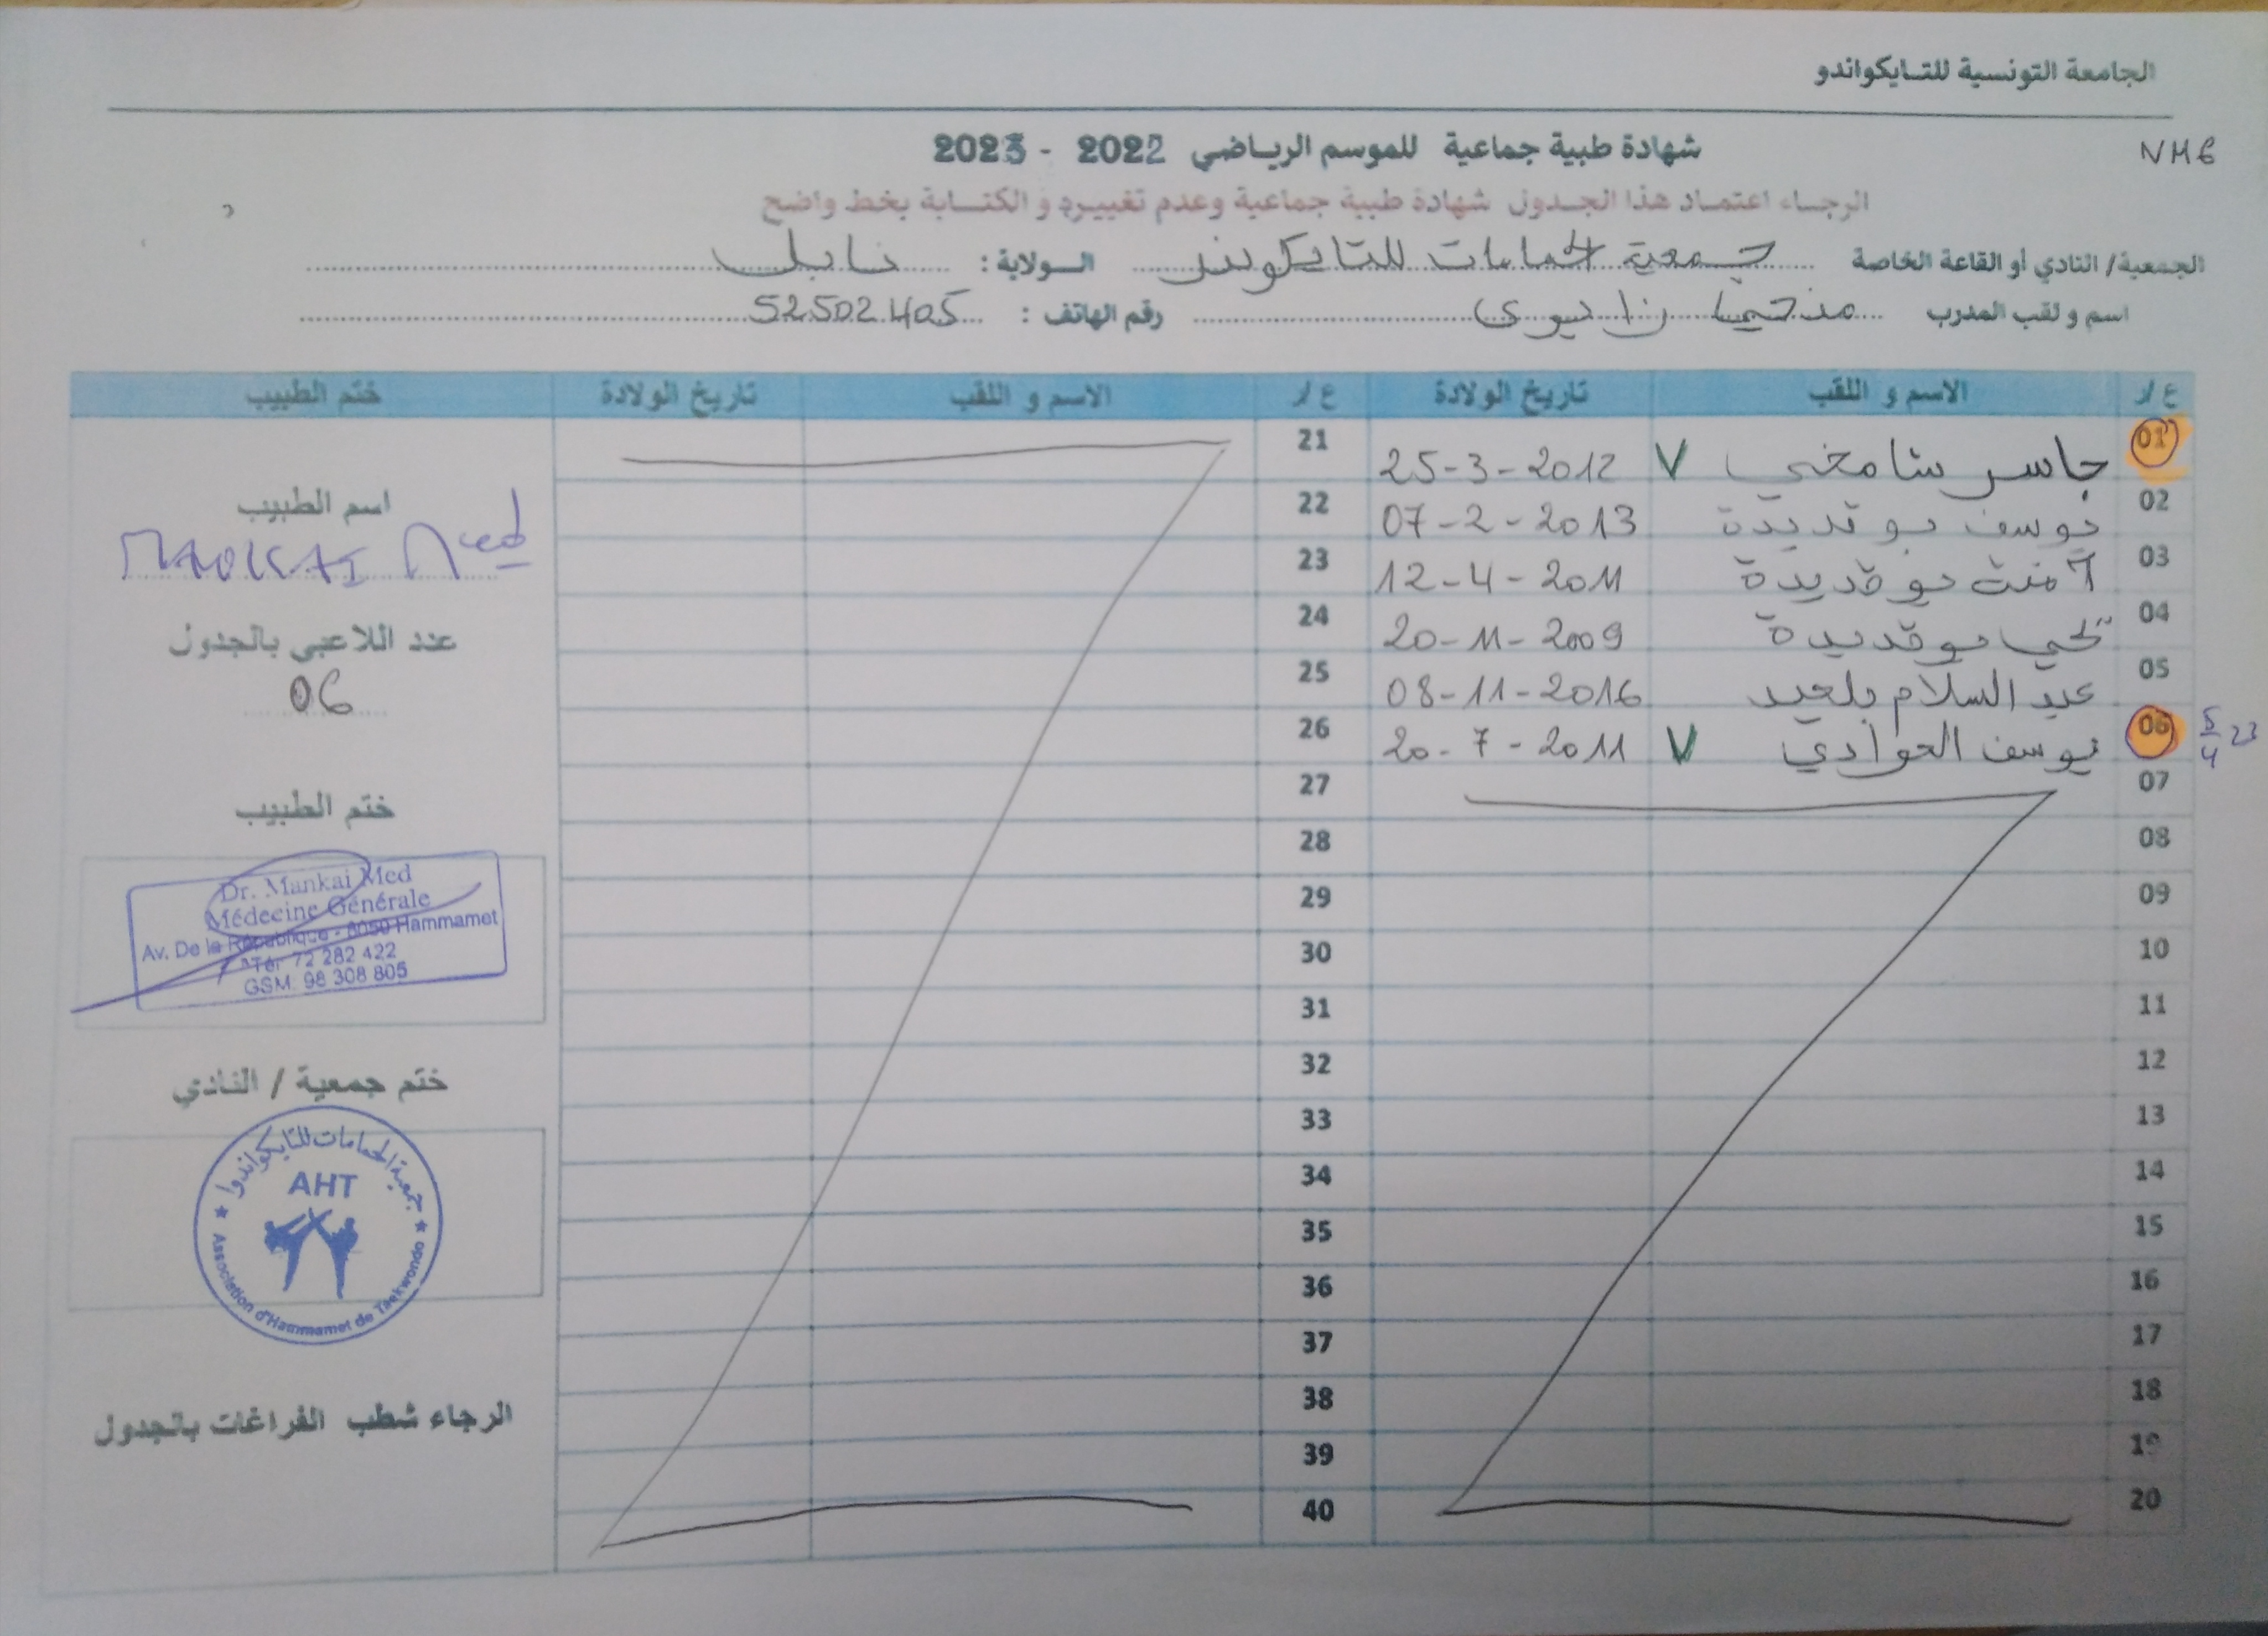 الجامعة التونسية للتايكواندو
NMG
شهادة طبية جماعية للموسم الرياضي 2022 - 2023
الرجاء اعتماد هذا الجدول شهادة طبية جماعية وعدم تغييره و الكتابة بخط واضح
الجمعية/ النادي أو القاعة الخاصة جمعية الحمامات للتايكوندو الولاية : نابل
اسم و لقب المدرب رقم الهاتف : 52502405
ع/ر الاسم و اللقب تاريخ الولادة ع/ر الاسم و اللقب تاريخ الولادة ختم الطبيب
01 جاسر V 25-3-2012 21
02 يوسف بوقديدة 07-2-2013 22
03 آمنة بوقديدة 12-4-2011 23
04 بوقديدة 20-11-2009 24
05 عبد السلام بلعيد 08-11-2016 25
06 يوسف الحوادي V 20-7-2011 26
5/4 23
07 27
08 28
09 29
10 30
11 31
12 32
13 33
14 34
15 35
16 36
17 37
18 38
19 39
20 40
اسم الطبيب
Med
عدد اللاعبي بالجدول
06
ختم الطبيب
Dr. Mankai Med
Médecine Générale
Av. De la République - 8050 Hammamet
Tél: 72 282 422
GSM. 98 308 805
ختم جمعية / النادي
جمعية الحمامات للتايكواندوا
AHT
Association d'Hammamet de Taekwondo
الرجاء شطب الفراغات بالجدول